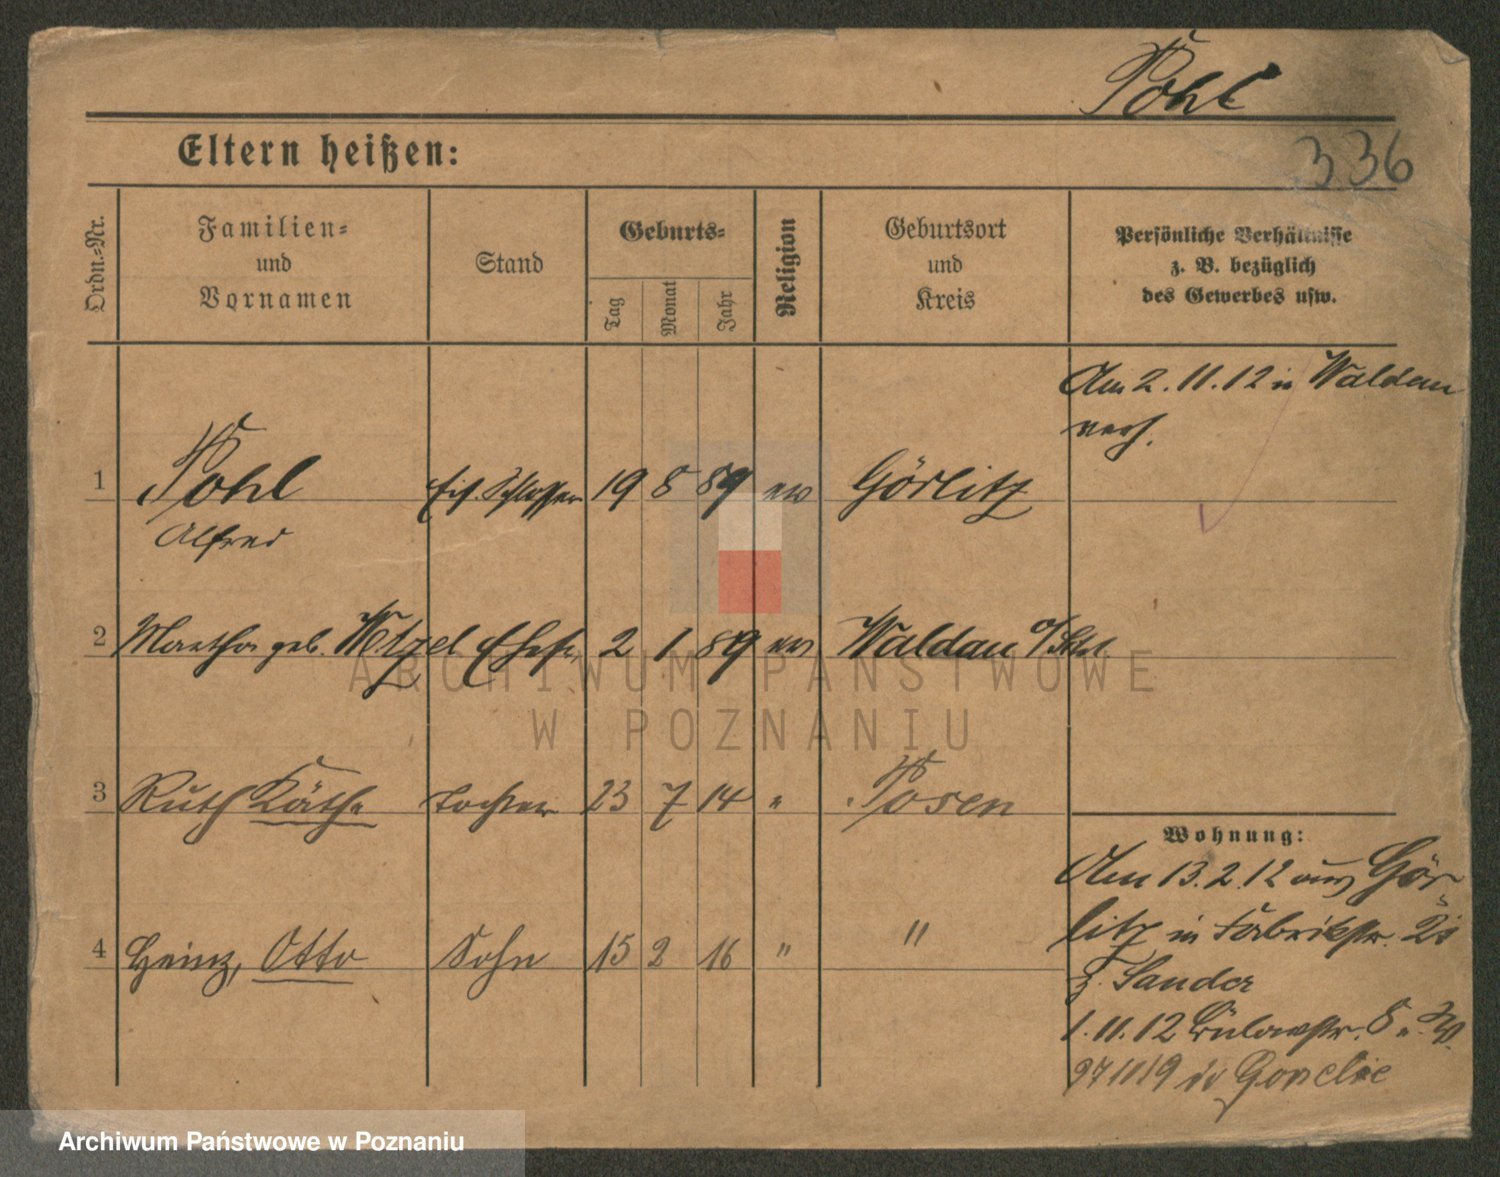 Pohl
336
Eltern heißen:
Ordn.-Nr.
Familien-
und
Vornamen
Stand
Geburts-
Tag
Monat
Jahr
Religion
Geburtsort
und
Kreis
Persönliche Verhältnisse
z. B. bezüglich
des Gewerbes usw.
Am 2.11.12 in Waldau
verh.
1 Pohl Schlosser 19 8 89 ev Görlitz
Alfred
2 Martha geb. Wetzel Ehefr. 2 1 89 ev Waldau
3 Ruth Käthe Tochter 23 7 14 " Posen
4 Heinz, Otto Sohn 15 2 16 " "
Wohnung:
Am 13.2.12 aus Gör-
litz in Fabrikstr.
b. Sander
1.11.12 Bülowstr.
ARCHIWUM PAŃSTWOWE
W POZNANIU
Archiwum Państwowe w Poznaniu